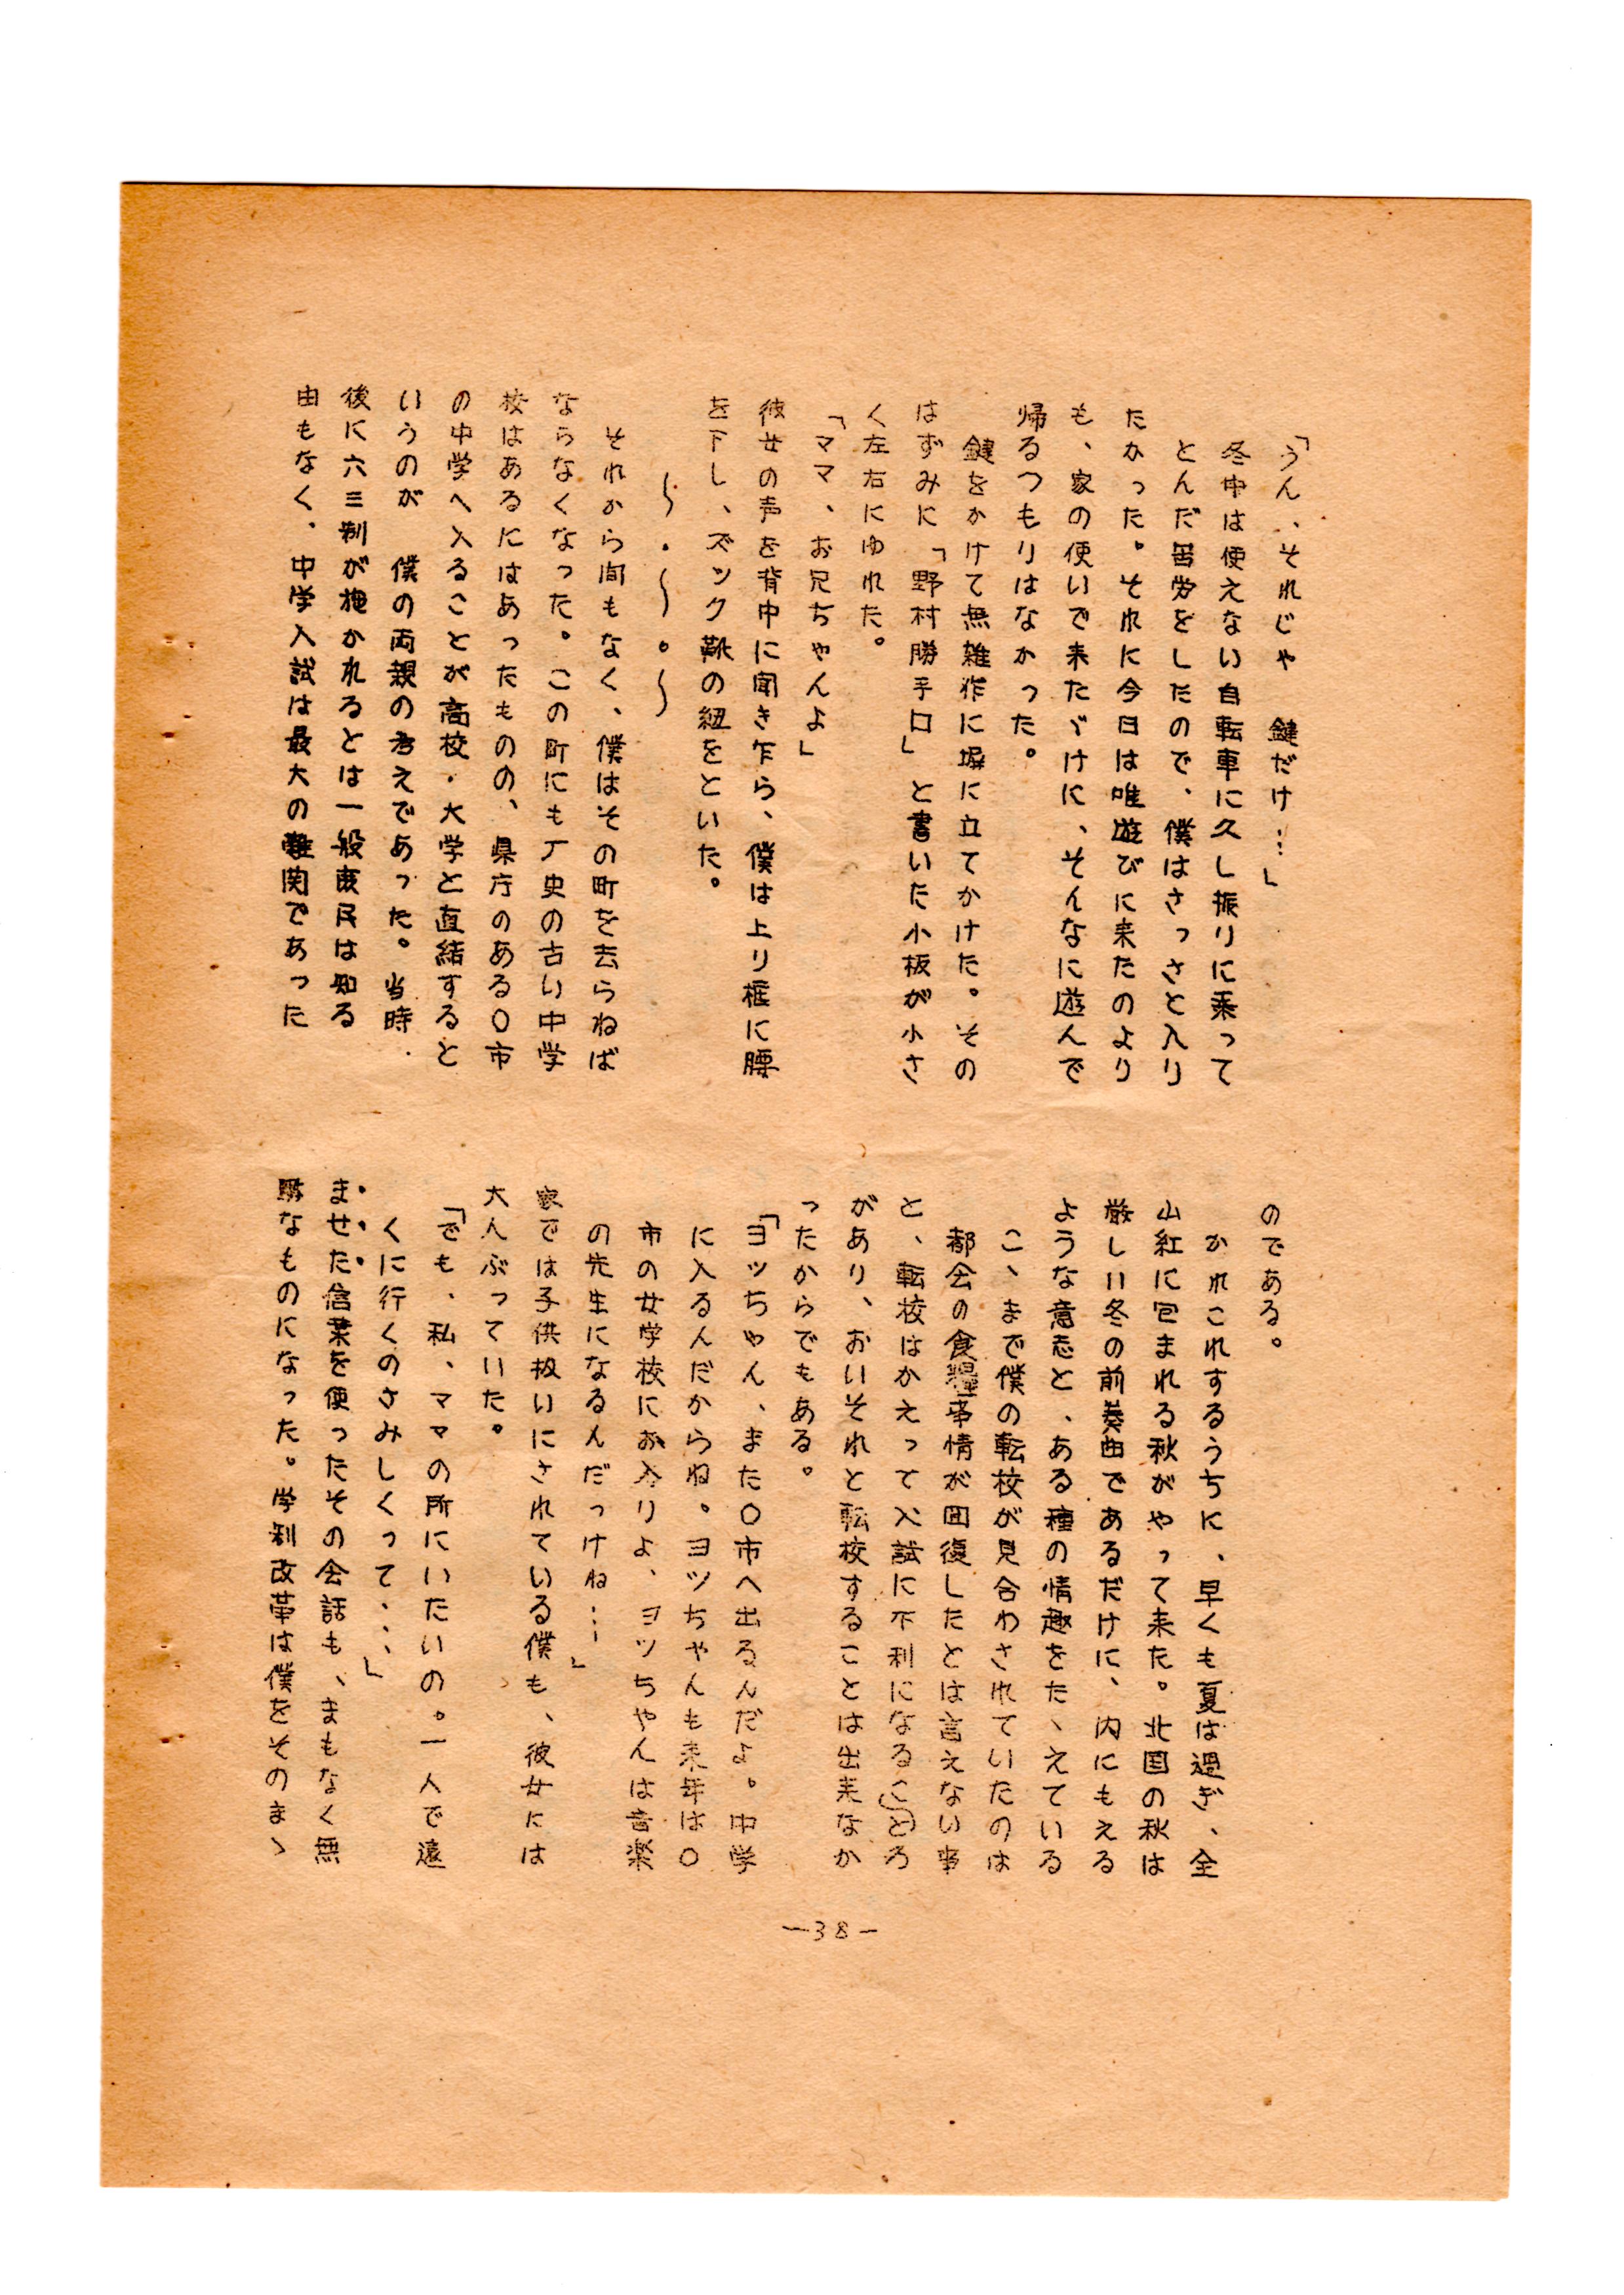 「うん、それじゃ　鍵だけ…」
冬中は使えない自転車に久し振りに乗って
とんだ苦労をしたので、僕はさっさと入り
たかった。それに今日は唯遊びに来たのより
も、家の使いで来たゞけに、そんなに遊んで
帰るつもりはなかった。
鍵をかけて無雑作に塀に立てかけた。その
はずみに「野村勝手口」と書いた小板が小さ
く左右にゆれた。
「ママ、お兄ちゃんよ」
彼女の声を背中に聞き乍ら、僕は上り框に腰
を下し、ズック靴の紐をといた。
〜・〜。〜
それから間もなく、僕はその町を去らねば
ならなくなった。この町にも厂史の古い中学
校はあるにはあったものの、県庁のある〇市
の中学へ入ることが高校・大学と直結すると
いうのが　僕の両親の考えであった。当時．
後に六三制が施かれるとは一般庶民は知る
由もなく、中学入試は最大の難関であった
のである。
かれこれするうちに、早くも夏は過ぎ、全
山紅に包まれる秋がやって来た。北国の秋は
厳しい冬の前奏曲であるだけに、内にもえる
ような意志と、ある種の情趣をたゝえている
こゝまで僕の転校が見合わされていたのは
都会の食糧事情が回復したとは言えない事
と、転校はかえって入試に不利になるところ
があり、おいそれと転校することは出来なか
ったからでもある。
「ヨッちゃん、また〇市へ出るんだよ。中学
に入るんだからね。ヨッちゃんも来年は〇
市の女学校にお入りよ、ヨッちゃんは音楽
の先生になるんだっけね…」
家では子供扱いにされている僕も、彼女には
大人ぶっていた。
「でも、私、ママの所にいたいの。一人で遠
くに行くのさみしくって・・・」
ませた信葉を使ったその会話も、まもなく無
駄なものになった。学制改革は僕をそのまゝ
—38—